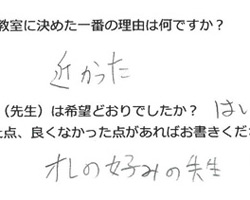 教室に決めた一番の理由は何ですか？
近かった
（先生）は希望どおりでしたか？ はい
点、良くなかった点があればお書きくだ
オレの好みの先生